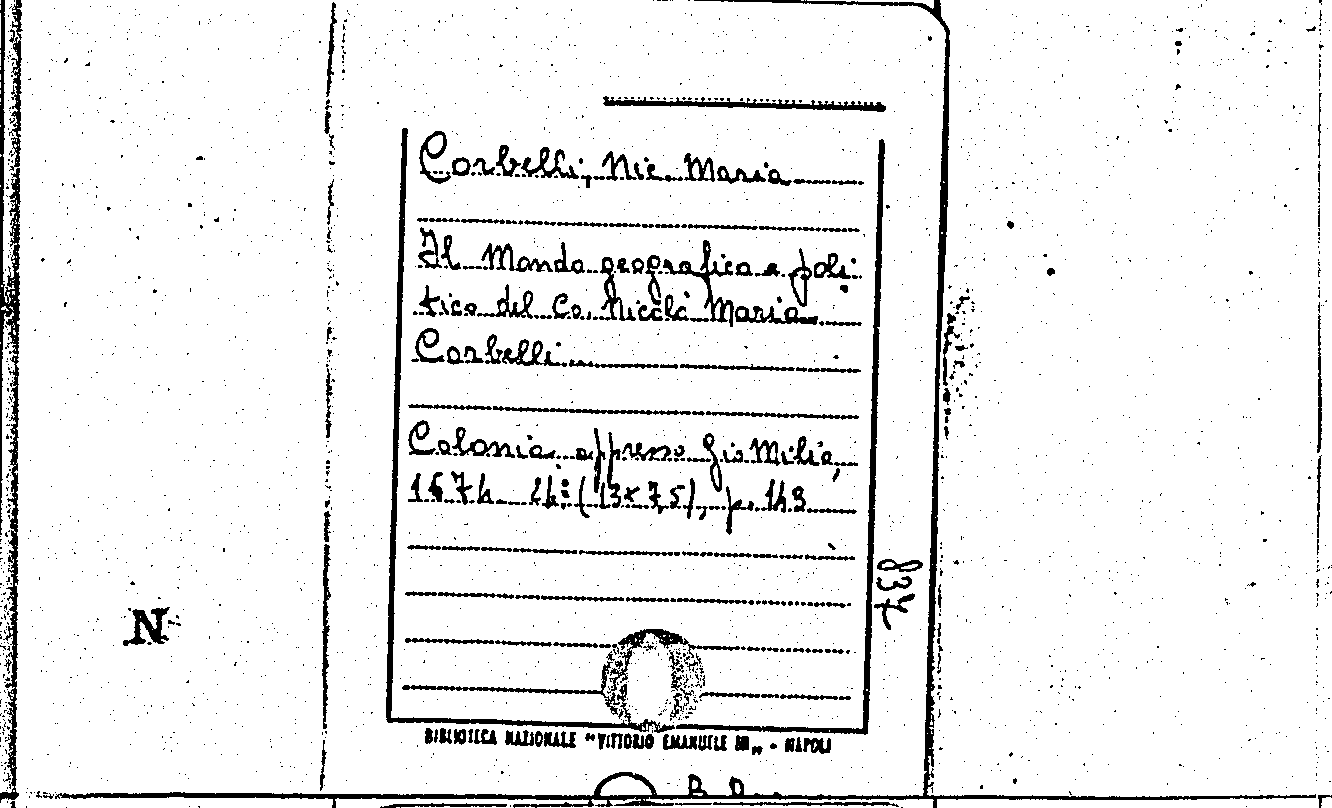 Corbelli, Nic. Maria
Il Mondo geografico e poli:
tico del Co. Nicolò Maria
Corbelli...
Colonia, appresso Gio Milia,
1674 24° (13x7,5), p. 143
837
N
BIBLIOTECA NAZIONALE "VITTORIO EMANUELE III" - NAPOLI